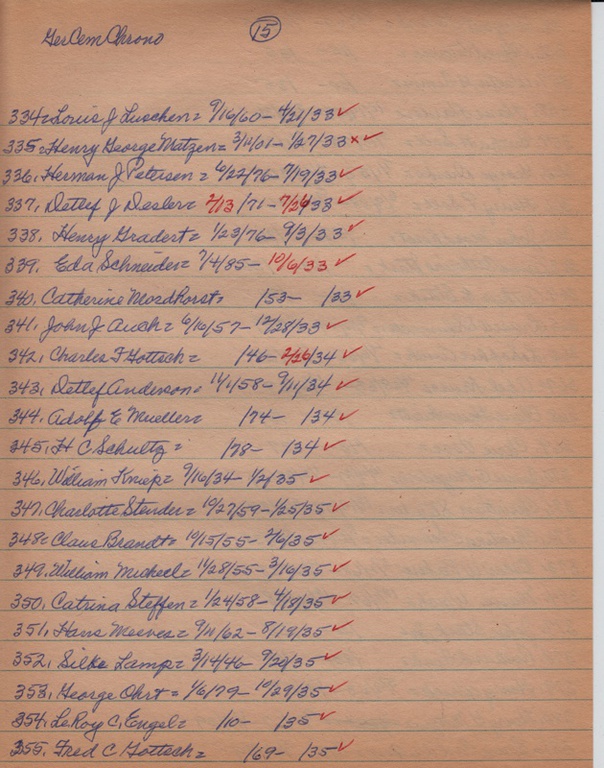 Ger Cem Chrono 15
334. Louis J Luschen = 9/16/60 - 4/21/33 ✓
335. Henry George Matzen = 3/11/01 - 1/27/33 x ✓
336. Herman J Petersen = 6/22/76 - 7/19/33 ✓
337. Detlef J Desler = 2/13/71 - 7/26/33 ✓
338. Henry Gradert = 1/23/76 - 9/3/33 ✓
339. Eda Schneider = 7/4/85 - 10/6/33 ✓
340. Catherine Mordhorst = /53 - /33 ✓
341. John J Auch = 6/16/57 - 12/28/33 ✓
342. Charles F Gottsch = /46 - 2/26/34 ✓
343. Detlef Anderson = 11/1/58 - 9/11/34 ✓
344. Adolf E Mueller = /74 - /34 ✓
345. H C Schultz = /78 - /34 ✓
346. William Kniep = 9/16/34 - 1/2/35 ✓
347. Charlotte Stender = 10/27/59 - 1/25/35 ✓
348. Claus Brandt = 10/15/55 - 2/6/35 ✓
349. William Mickeel = 11/28/55 - 3/16/35 ✓
350. Catrina Steffen = 1/24/58 - 4/18/35 ✓
351. Hans Meeves = 9/11/62 - 8/19/35 ✓
352. Silke Lamp = 3/14/46 - 9/20/35 ✓
353. George Ohrt = 1/6/79 - 10/29/35 ✓
354. LeRoy C. Engel = /10 - /35 ✓
355. Fred C Gottsch = /69 - /35 ✓